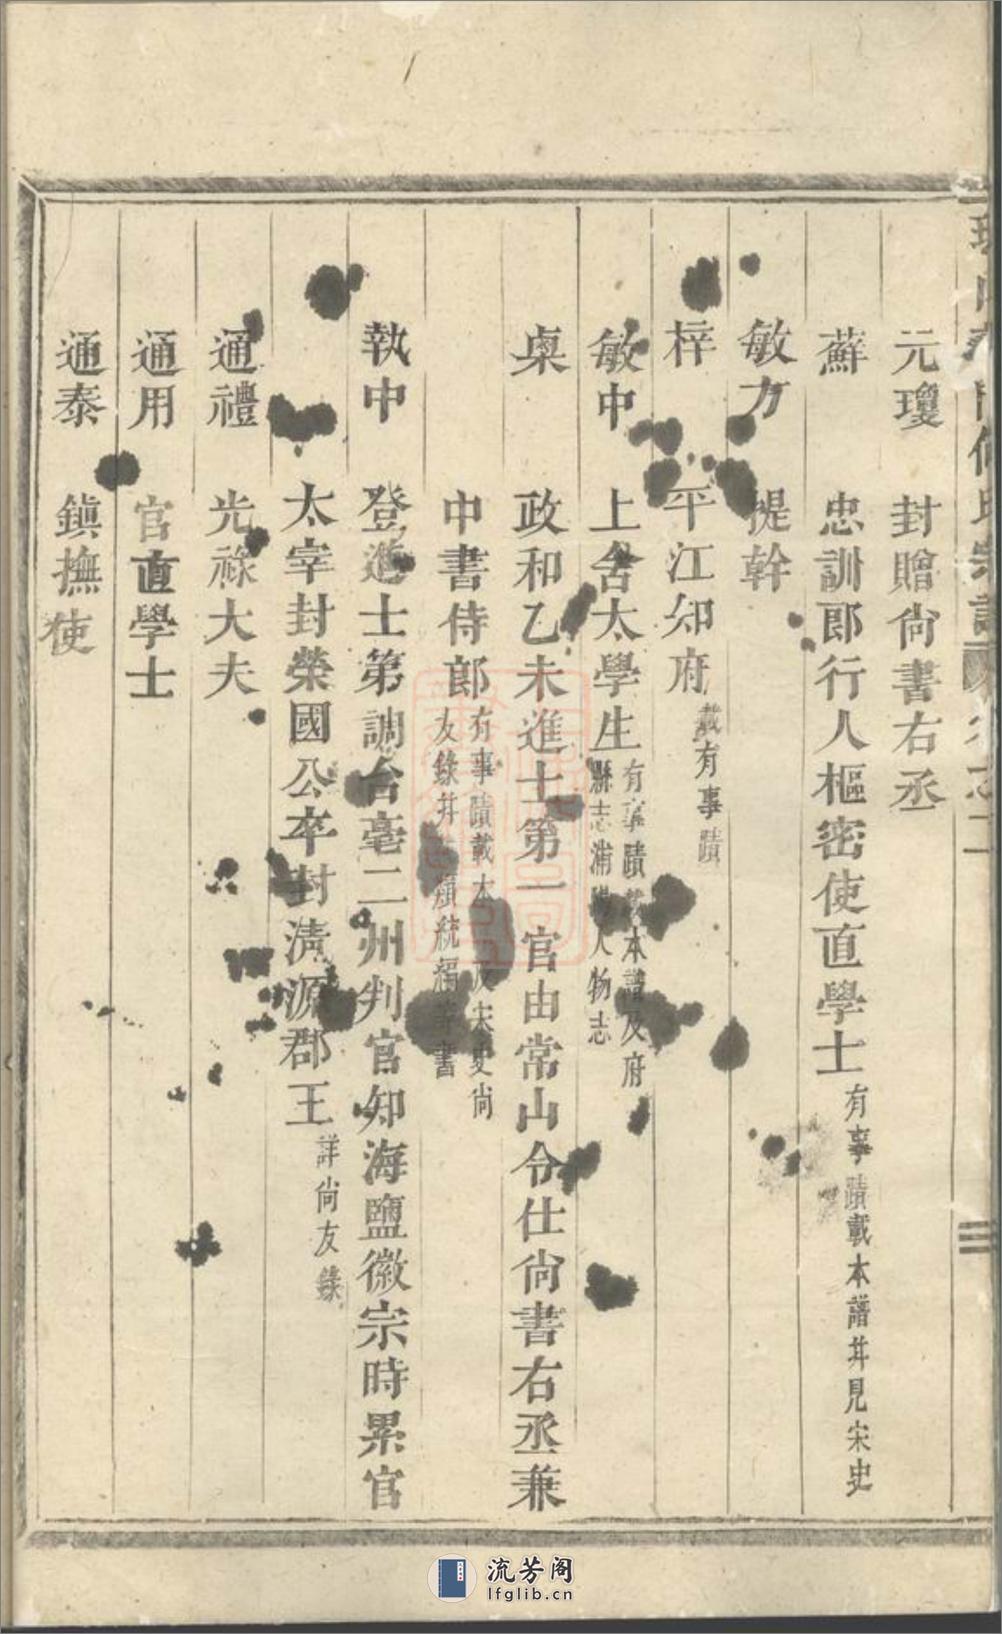 元瓊 封贈尙書右丞
蘇 忠訓郎行人樞密使直學士 有事蹟載本譜并見宋史
敏力 提幹
梓 平江知府 載有事蹟
敏中 上舍太學生 有事蹟載本譜及府
縣志浦陽人物志
㮚 政和乙未進士第一官由常山令仕尙書右丞兼
中書侍郎 有事蹟載本 及宋史尙
友錄并 書
執中 登進士第調台亳二州判官知海鹽徽宗時累官
太宰封榮國公卒封清源郡王 詳尙友錄
通禮 光祿大夫
通用 官直學士
通泰 鎮撫使
流芳阁
lfglib.cn